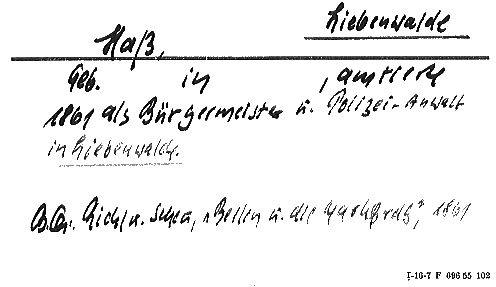 Liebenwalde
Maß,
Geb. in , amtierte
1861 als Bürgermeister u. Polizei-Anwalt
in Liebenwalde.
Riehl u. Scheu, "Berlin u. die Mark Brdbg", 1861
I-16-7 F 696 55 102